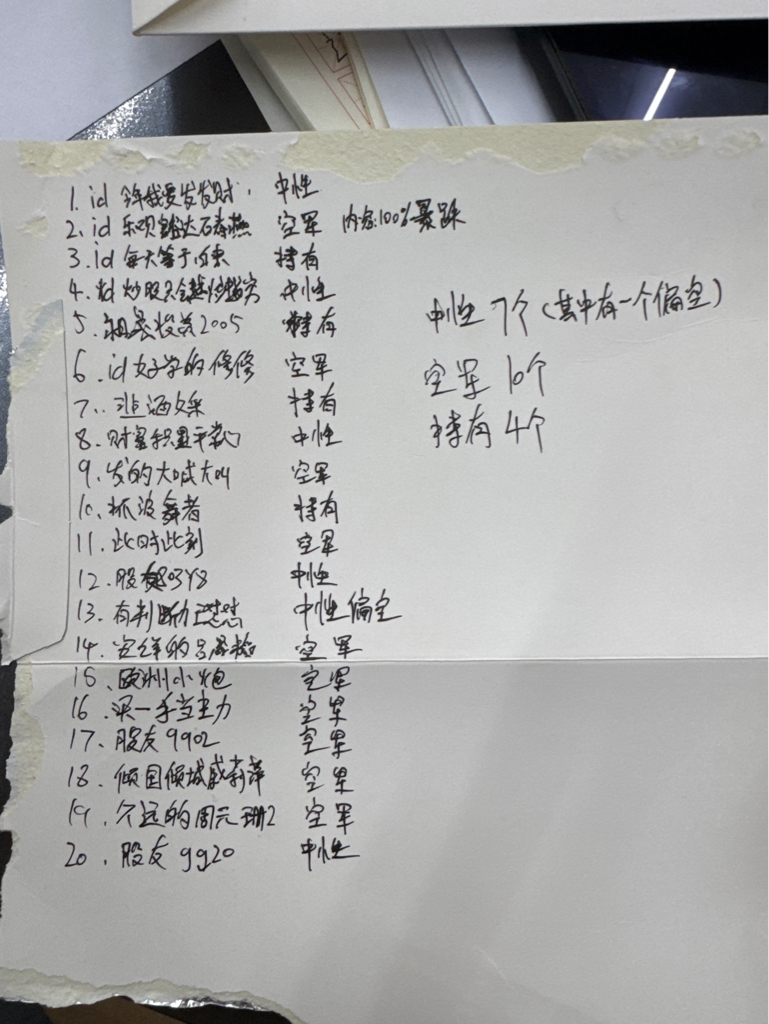 1. id 今年我要发发财, 中性
2. id 乐呗 达石寿燕 空军 内容:100%暴跌
3. id 每天等于 持有
4. id 炒股只会越炒越穷 中性
5. 投资2005 持有
6. id 好学的修修 空军
7. 持有
8. 财富积 中性
9. 发的大喊大叫 空军
10. 抓波舞者 持有
11. 此时此刻 空军
12. 股友 中性
13. 有判断力 中性偏空
14. 的 空军
15、欧洲小炮 空军
16、买一手当主力 空军
17、股友9902 空军
18、倾国倾城威莉萍 空军
19、久远的周元珊2 空军
20、股友 9920 中性
中性 7个(其中有一个偏空)
空军 10个
持有 4个